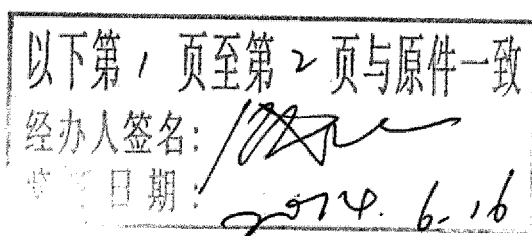 以下第1页至第2页与原件一致
经办人签名：
日期：2014.6.16